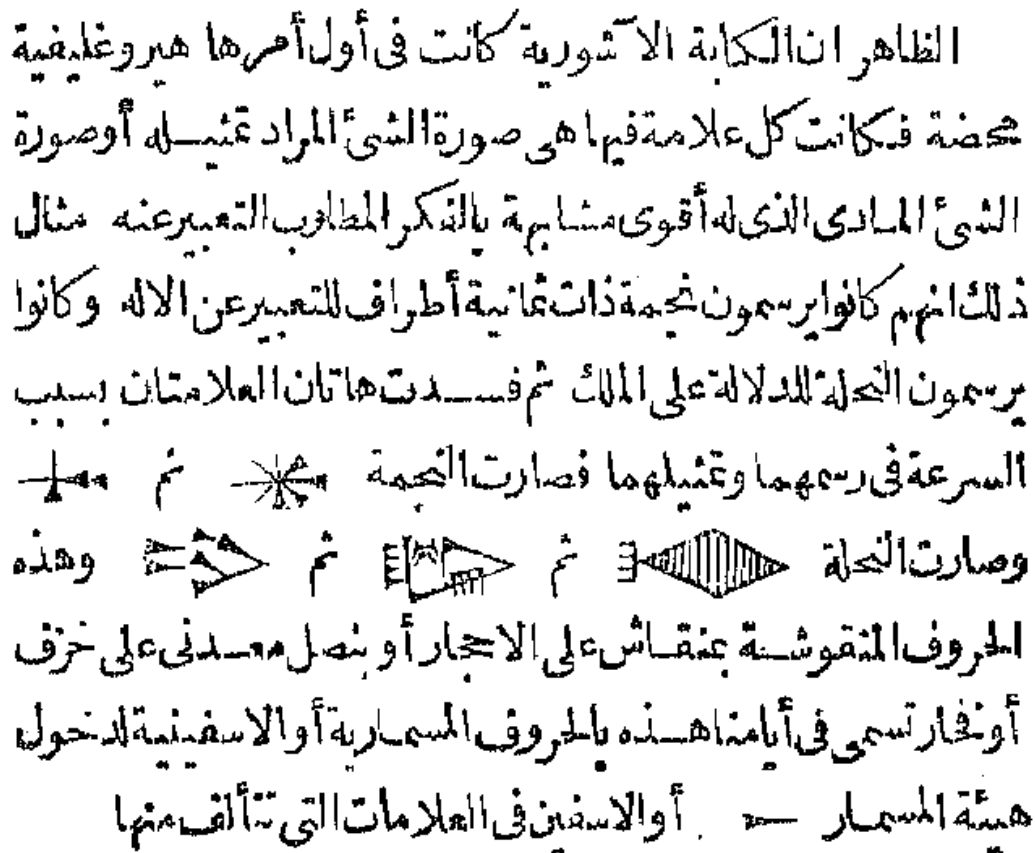 الظاهر ان الكتابة الآشورية كانت فى أول أمرها هيروغليفية
محضة فكانت كل علامة فيها هى صورة الشئ المراد تمثيله أو صورة
الشئ المادى الذى له أقوى مشابهة بالفكر المطلوب التعبير عنه مثال
ذلك انهم كانوا يرسمون نجمة ذات ثمانية أطراف للتعبير عن الاله وكانوا
يرسمون النحلة للدلالة على الملك ثم فسدت هاتان العلامتان بسبب
السرعة فى رسمهما وتمثيلهما فصارت النجمة ثم
وصارت النحلة ثم ثم وهذه
الحروف المنقوشة بمنقاش على الاحجار أو بنصل معدنى على خزف
أو فخار تسمى فى أيامنا هذه بالحروف المسمارية أو الاسفينية لدخول
هيئة المسمار أو الاسفين فى العلامات التى تتألف منها